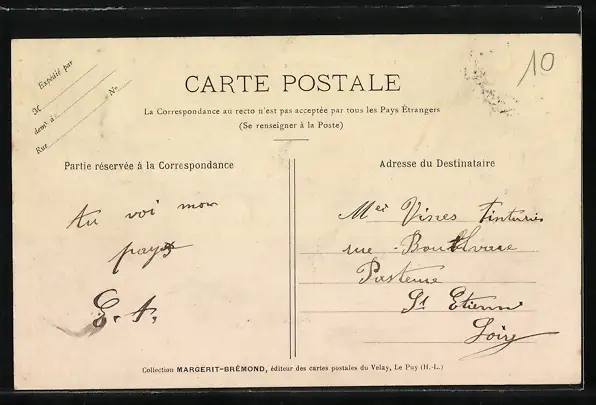 10
Expédié par
M
demt à
Rue
No
CARTE POSTALE
La Correspondance au recto n'est pas acceptée par tous les Pays Étrangers
(Se renseigner à la Poste)
Partie réservée à la Correspondance
Adresse du Destinataire
tu voi mon
pays
E. A.
Mei Vires
rue
Pasteur
St Etienne
Loire
Collection MARGERIT-BRÉMOND, éditeur des cartes postales du Velay, Le Puy (H.-L.)